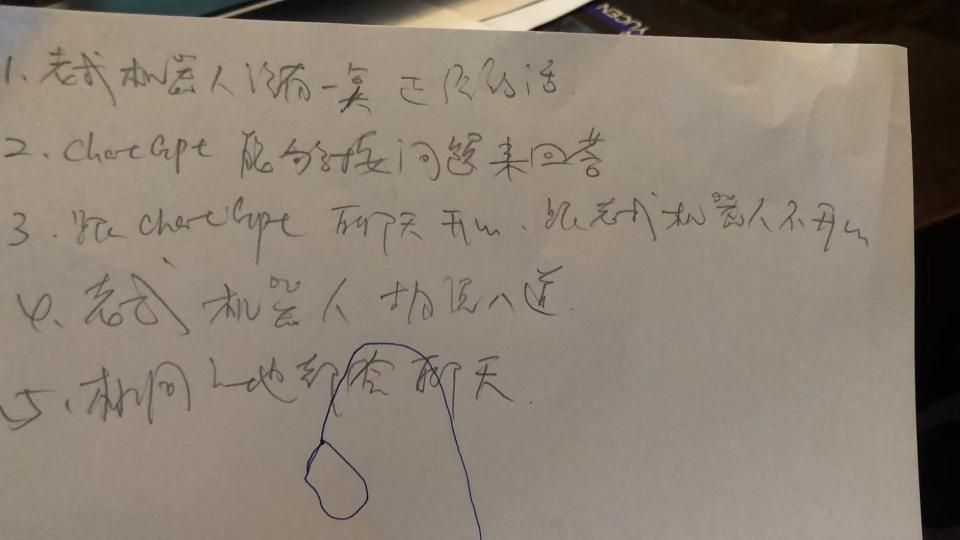 YUCEN
1. 老式机器人没有一真正经的话.
2. ChatGpt 能够按问题来回答
3. 跟 ChatGpt 聊天开心、跟老式机器人不开心
4、老式 机器人 胡说八道.
5、相同 他都会聊天.